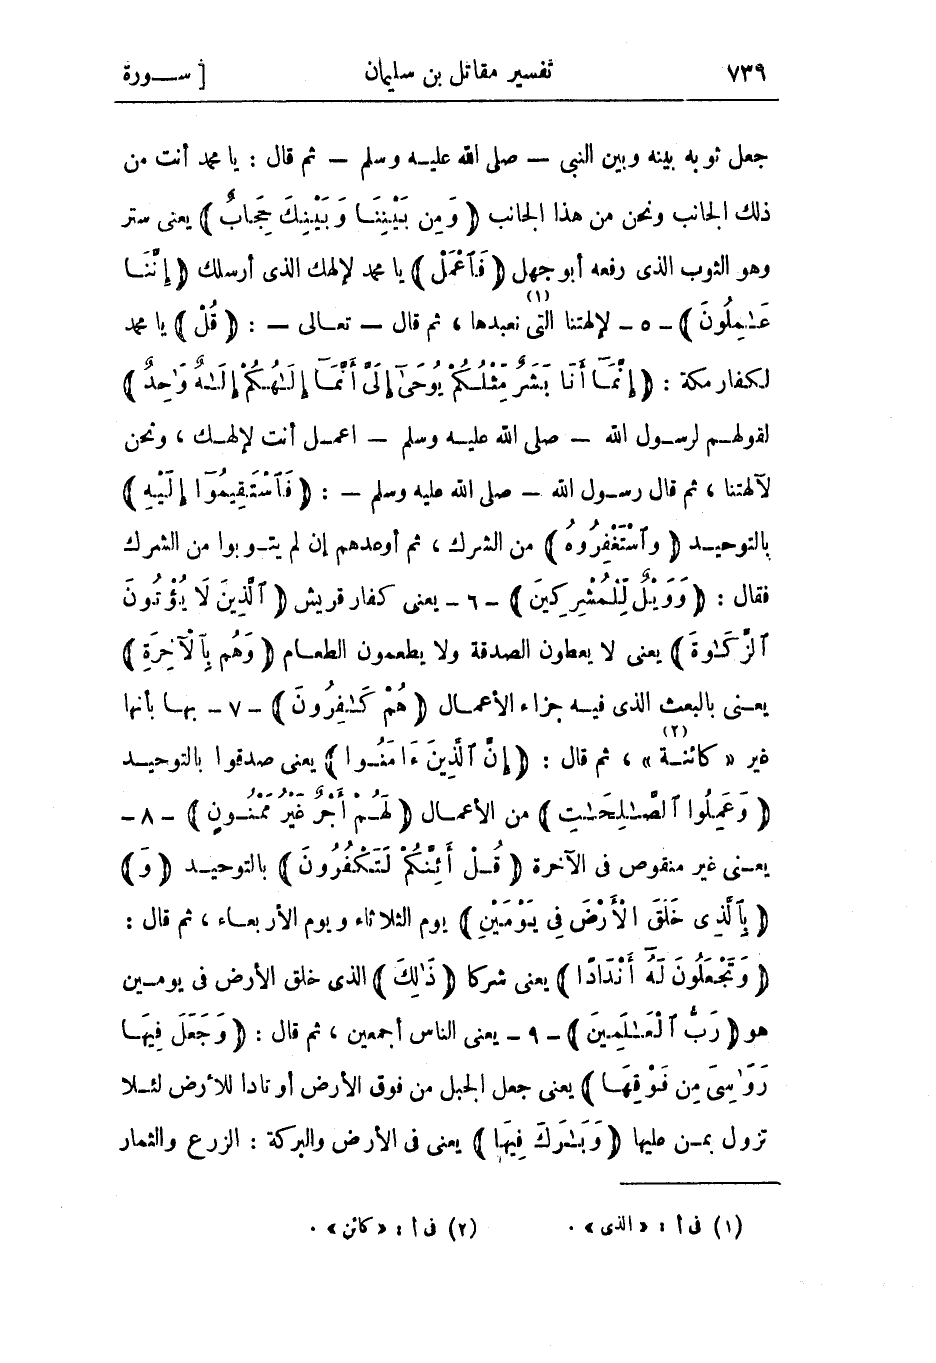 ٧٣٩ تفسير مقاتل بن سليمان [ سـورة
جعل ثوبه بينه وبين النبى — صلى الله عليه وسلم — ثم قال : يا محمد أنت من
ذلك الجانب ونحن من هذا الجانب ﴿ وَمِن بَيْنِنَا وَبَيْنِكَ حِجَابٌ ﴾ يعنى ستر
وهو الثوب الذى رفعه أبو جهل ﴿ فَٱعْمَلْ ﴾ يا محمد لإلهك الذى أرسلك ﴿ إِنَّنَا
عَـٰمِلُونَ ﴾ - ٥ - لإلهتنا التى (١) نعبدها ، ثم قال — تعالى — : ﴿ قُلْ ﴾ يا محمد
لكفار مكة : ﴿ إِنَّمَآ أَنَا بَشَرٌ مِّثْلُكُمْ يُوحَىٰٓ إِلَىَّ أَنَّمَآ إِلَـٰهُكُمْ إِلَـٰهٌ وَٰحِدٌ ﴾
لقولهم لرسول الله — صلى الله عليه وسلم — اعمل أنت لإلهك ، ونحن
لآلهتنا ، ثم قال رسول الله — صلى الله عليه وسلم — : ﴿ فَٱسْتَقِيمُوٓا إِلَيْهِ ﴾
بالتوحيد ﴿ وٱسْتَغْفِرُوهُ ﴾ من الشرك ، ثم أوعدهم إن لم يتوبوا من الشرك
فقال : ﴿ وَوَيْلٌ لِّلْمُشْرِكِينَ ﴾ - ٦ - يعنى كفار قريش ﴿ ٱلَّذِينَ لَا يُؤْتُونَ
ٱلزَّكَـٰوةَ ﴾ يعنى لا يعطون الصدقة ولا يطعمون الطعام ﴿ وَهُم بِٱلْآخِرَةِ ﴾
يعنى بالبعث الذى فيه جزاء الأعمال ﴿ هُمْ كَـٰفِرُونَ ﴾ - ٧ - بها بأنها
غير « كائنة » (٢) ، ثم قال : ﴿ إِنَّ ٱلَّذِينَ ءَامَنُوا ﴾ يعنى صدقوا بالتوحيد
﴿ وَعَمِلُوا ٱلصَّـٰلِحَـٰتِ ﴾ من الأعمال ﴿ لَهُمْ أَجْرٌ غَيْرُ مَمْنُونٍ ﴾ - ٨ -
يعنى غير منقوص فى الآخرة ﴿ قُلْ أَئِنَّكُمْ لَتَكْفُرُونَ ﴾ بالتوحيد ﴿ وَ ﴾
﴿ بِٱلَّذِى خَلَقَ الْأَرْضَ فِى يَوْمَيْنِ ﴾ يوم الثلاثاء ويوم الأربعاء ، ثم قال :
﴿ وَتَجْعَلُونَ لَهُٓ أَنْدَادًا ﴾ يعنى شركا ﴿ ذَٰلِكَ ﴾ الذى خلق الأرض فى يومين
هو ﴿ رَبُّ ٱلْعَـٰلَمِينَ ﴾ - ٩ - يعنى الناس أجمعين ، ثم قال : ﴿ وَجَعَلَ فِيهَا
رَوَٰسِىَ مِن فَوْقِهَا ﴾ يعنى جعل الجبل من فوق الأرض أوتادا للأرض لئلا
تزول بمن عليها ﴿ وَبَـٰرَكَ فِيهَا ﴾ يعنى فى الأرض والبركة : الزرع والثمار
(١) فى أ : « الذى » . (٢) فى أ : « كائن » .